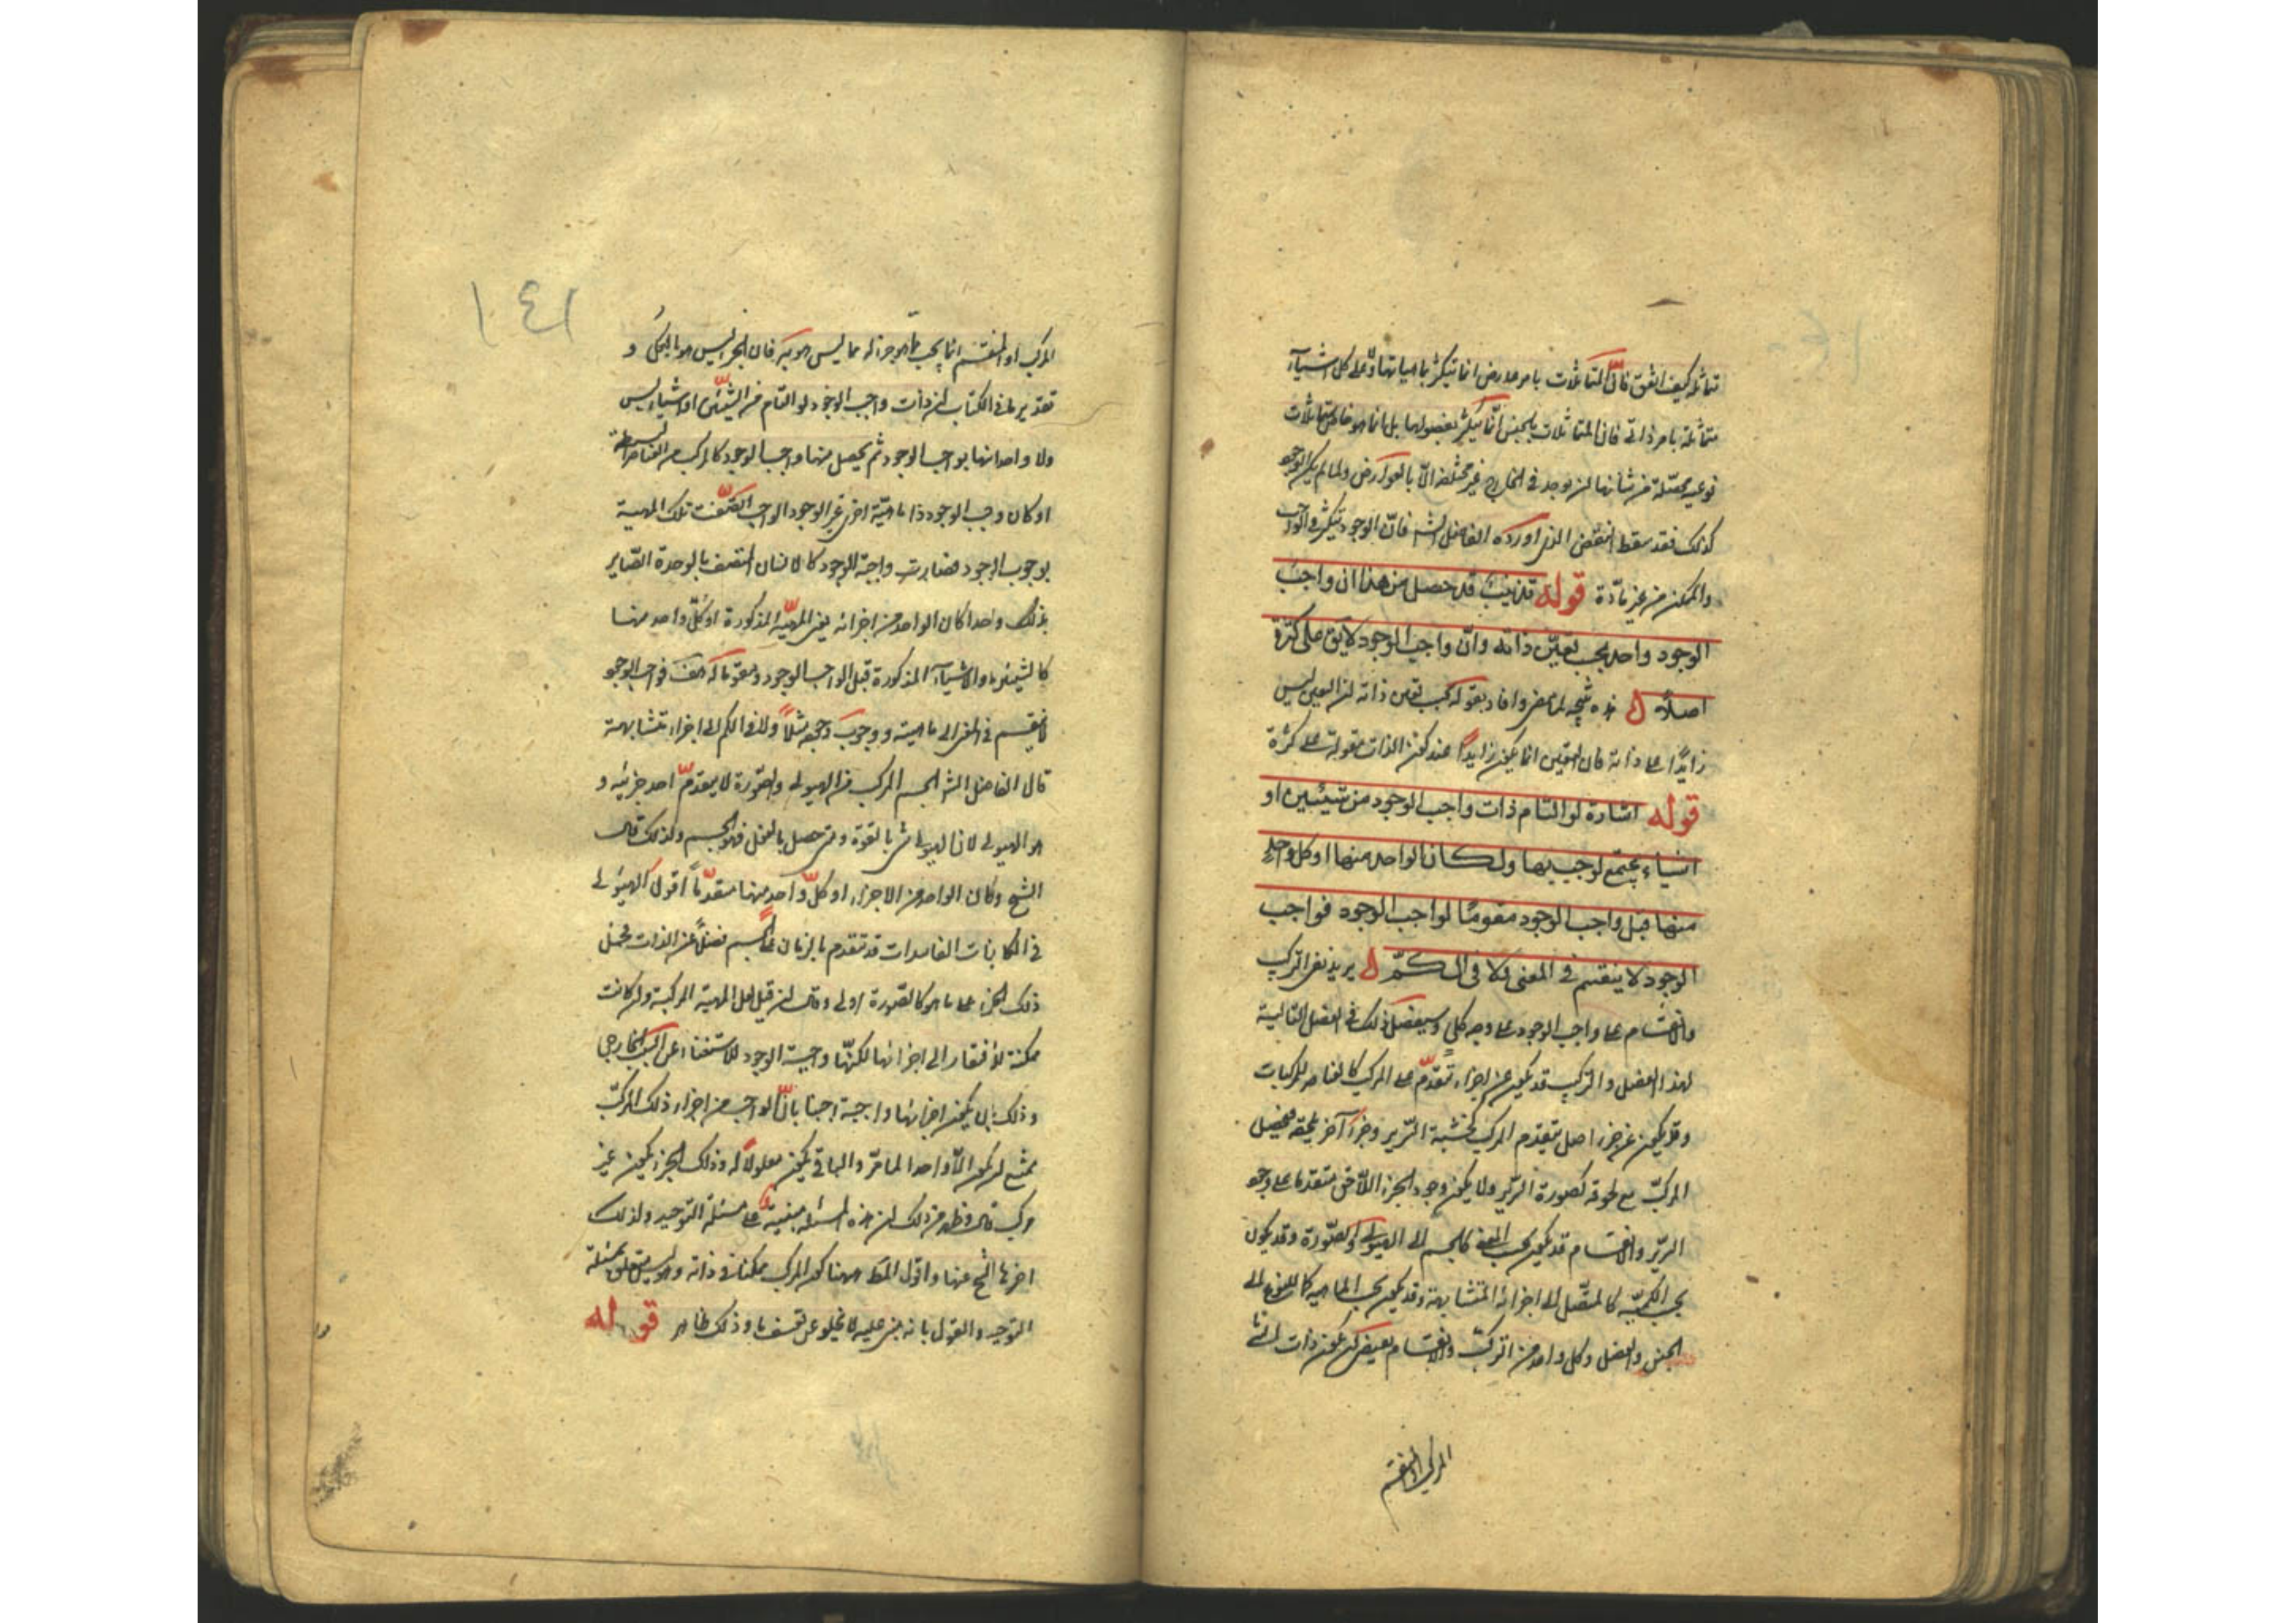 تماثله كيف اتفق فانّ المتماثلات بامر عارض انما تتكثر بماهياتها ولا على كل اشيآء
متماثلة بامر ذاتى فان المتماثلات بالجنس انّما يتكثّر بفصولها بل انما هو خاص بمتماثلات
نوعية محصّلة من شأنها ان يوجد فى الخارج غير مختلفة الّا بالعوارض ولما لم يكن الوجود
كذلك فقد سقط النقض الذى اورده الفاضل الشه فانّ الوجود يتكثر فى الواجب
والممكن من غير مادّة قوله تذنيب قد حصل من هذا ان واجب
الوجود واحد بحسب تعيّن ذاته وانّ واجب الوجود لا يق على كثرة
اصلاً ل هذه نتيجه لما مضى وافاد بقوله بحسب تعين ذاته ان التعين ليس
زايدًا على ذاته فان التعين انما يكون زايدًا عند كون الذات مقولة على كثرة
قوله اشارة لو التام ذات واجب الوجود من شيئين او
اشياء يجتمع لوجب بها ولكان الواحد منها او كل واحد
منها قبل واجب الوجود مقومًا لواجب الوجود فواجب
الوجود لا ينقسم فى المعنى ولا فى الكمّ ل يريد نفى التركيب
والانقسام عن واجب الوجود على وجه كلى وسيفصل ذلك فى الفصل التالية
لهذا الفصل والتركيب قد يكون عن اجزاء تتقدّم على المركب كالعناصر للمركبات
وقد يكون عن جزء اصل يتقدم المركب كخشبة السّرير وجزء آخر يلحقه فيحصل
المركبّ مع لحوقه كصورة السّرير ولا يكون وجود الجزء اللّاحق متقدما على وجود
السّرير والانقسام قد يكون بحسب المعنى كالجسم الى الهيولى والصّورة وقد يكون
بحسب الكميّة كالمتصّل الى اجزائه المتشابهة وقد يكون بحسب الماهيه كالنوع الى
الجنس والفصل وكل واحد من التركبّ والانقسام يقتضى كون ذات الشئ
المركب او المنقسم
١٤١
المركب او المنقسم انما يجب بما هو جزء له مما ليس هو به فان الجزء ليس هو بالكل و
تقدير ما فى الكتاب ان ذات واجب الوجود لو التام من الشيئين او اشياء ليس
ولا واحد منها بواجب الوجود ثم يحصل منها واجب الوجود كالمركب من العناصر البسيطة
او كان واجب الوجود ذا ماهيّة اخرى غير الوجود الواجب اتصفت تلك المهية
بوجوب الوجود فصارت واجبة الوجود كالانسان المتصف بالوحدة الصّاير
بذلك واحدا كان الواحد من اجزائه يعنى المهيّة المذكورة او كلّ واحد منها
كالشيئين او الاشيآء المذكورة قبل الواجب الوجود ومقوّما له هف فواجب الوجود
لا ينقسم فى المعنى الى ماهيته ووجوب وجود مثلاً ولا فى الكم الى اجزاء متشابهة
قال الفاضل الشه الجسم المركب من الهيولى والصّورة لا يتقدمّ احد جزئيه و
هو الهيولى لان الهيولى شئ بالقوة ومتى حصل بالفعل فهو الجسم ولذلك قال
الشيخ وكان الواحد من الاجزاء او كلّ واحد منها متقدّماً اقول الهيولى
فى الكاينات الفاسدات قد تتقدم بالزمان على الجسم فضلاً عن الذات فحمل
ذلك الجزء على ما هو كالصّورة اولى وقال ان قيل لعل المهية المركبة وان كانت
ممكنة للافتقار الى اجزائها لكنّها واجبة الوجود للاستغناء عن السبب الخارجى
وذلك بان يكون اجزائها واجبة اجبنا بانّ الواجب من اجزاء ذلك المركبّ
يمتنع ان يكون الاّ واحدا لما مرّ والباقى يكون معلولاً له وذلك الجزء يكون غير
مركب قال وظهر من ذلك ان هذه المسئله مبنية على مسئلة التوحيد ولذلك
اخرها الشيخ عنها واقول المط ههنا كون المركب ممكنا فى ذاته وليس يتعلق بمسئلة
التوحيد والقول بانه مبنى عليه لا يخلو عن تعسف ما وذلك ظاهر قوله